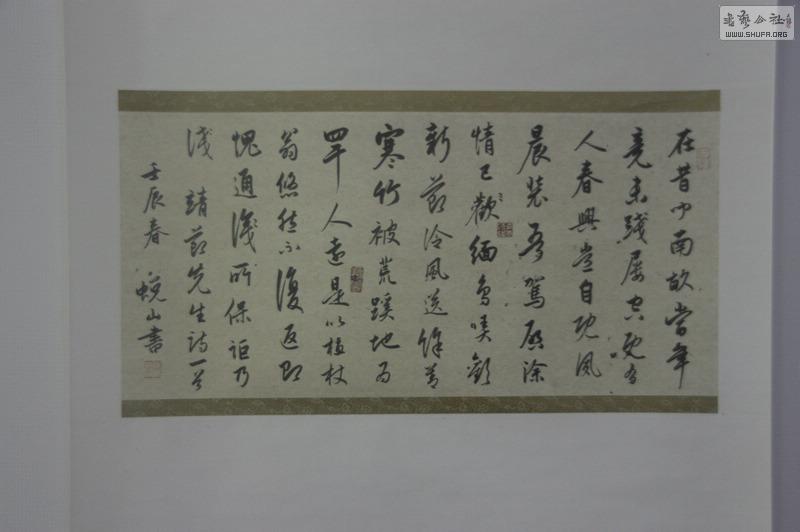 在昔闻南畝當年
竟未踐屢空既有
人春興豈自免夙
晨裝吾駕啓塗
情已歡緬鳥哢歡
新節泠風送餘善
寒竹被荒蹊地為
罕人遠是以植杖
翁悠然不復返即
愧通識所保詎乃
淺 靖節先生詩一首
壬辰春 蜕山書
書藝公社
WWW.SHUFA.ORG